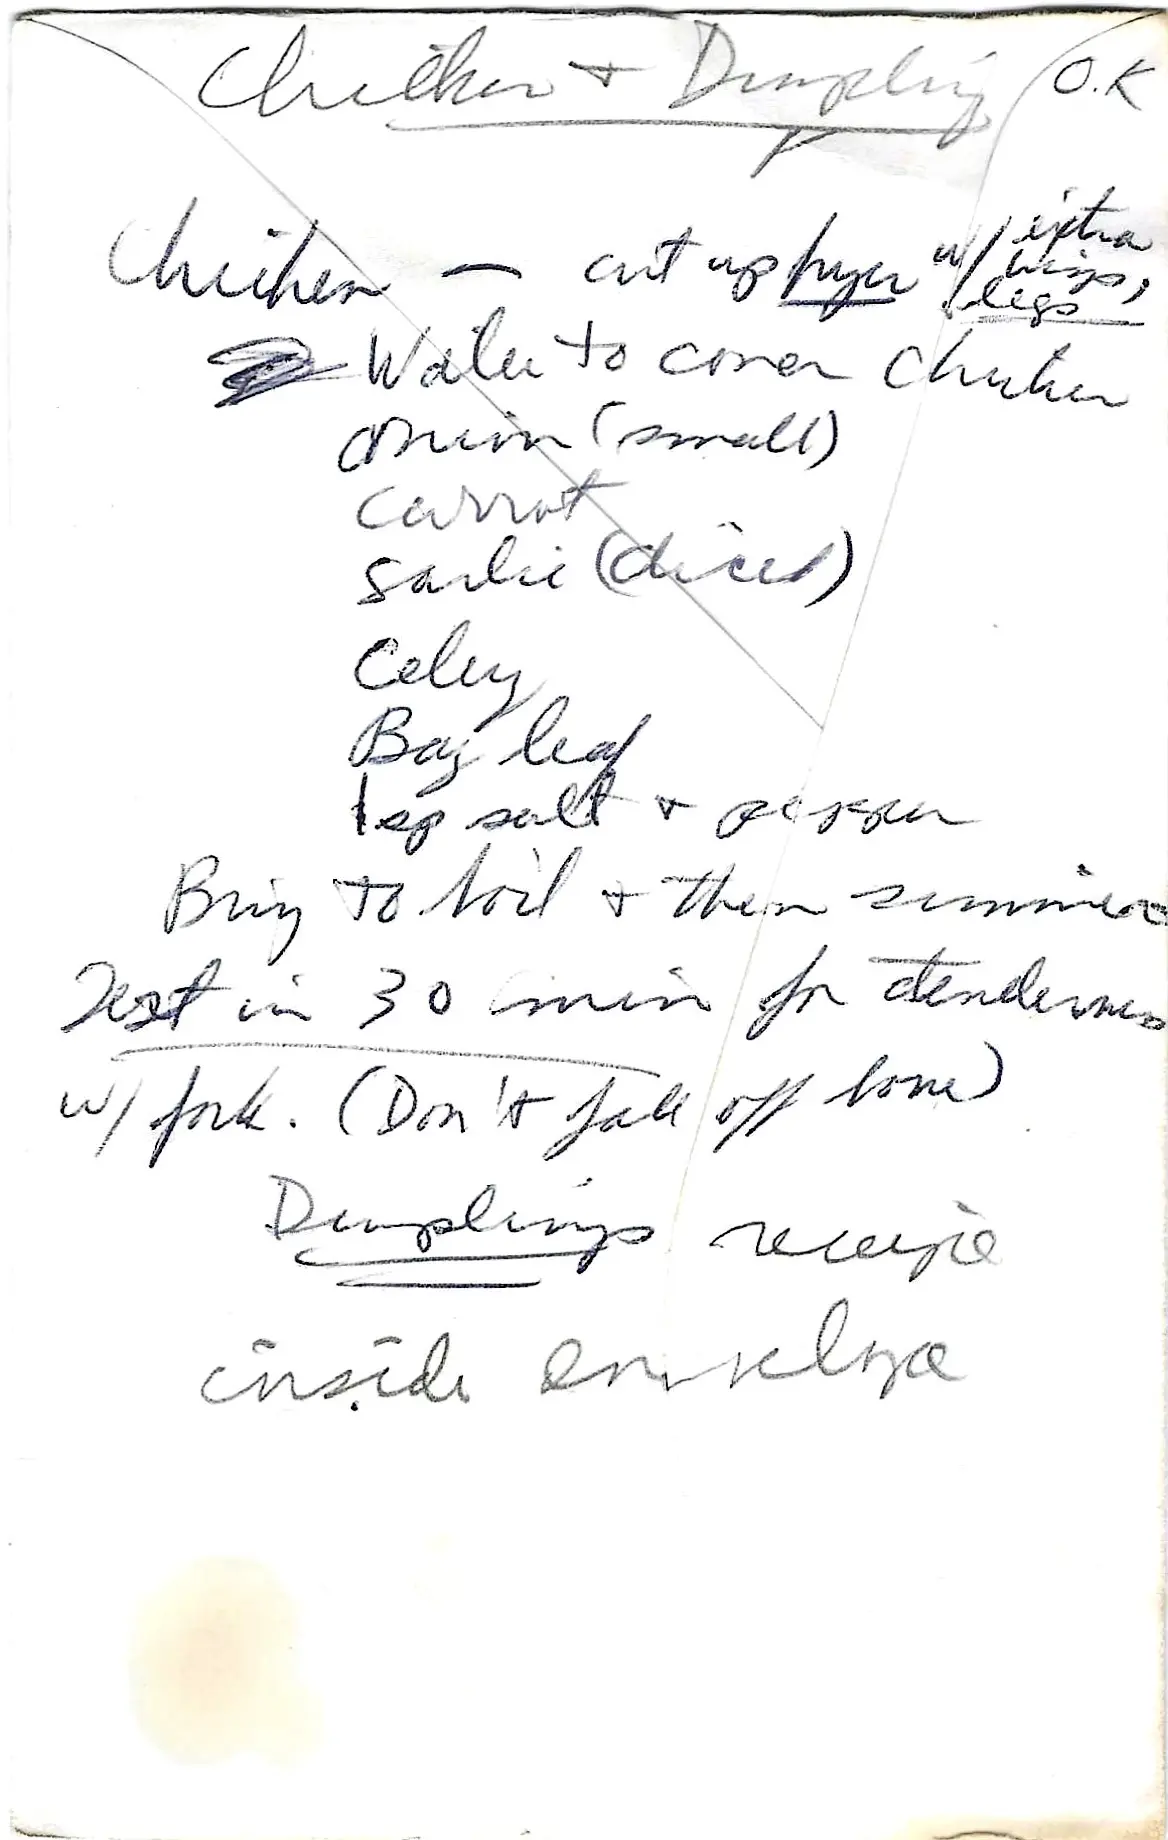 Chicken + Dumpling
O.K
Chicken — cut up fryer w/ extra wings, legs
Water to cover chicken
onion (small)
carrot
garlic (diced)
Celery
Bay leaf
tsp salt + pepper
Bring to boil + then simmer
Test in 30 min for tenderness
w/ fork. (Don't fall off bone)
Dumplings receipe
inside envelope